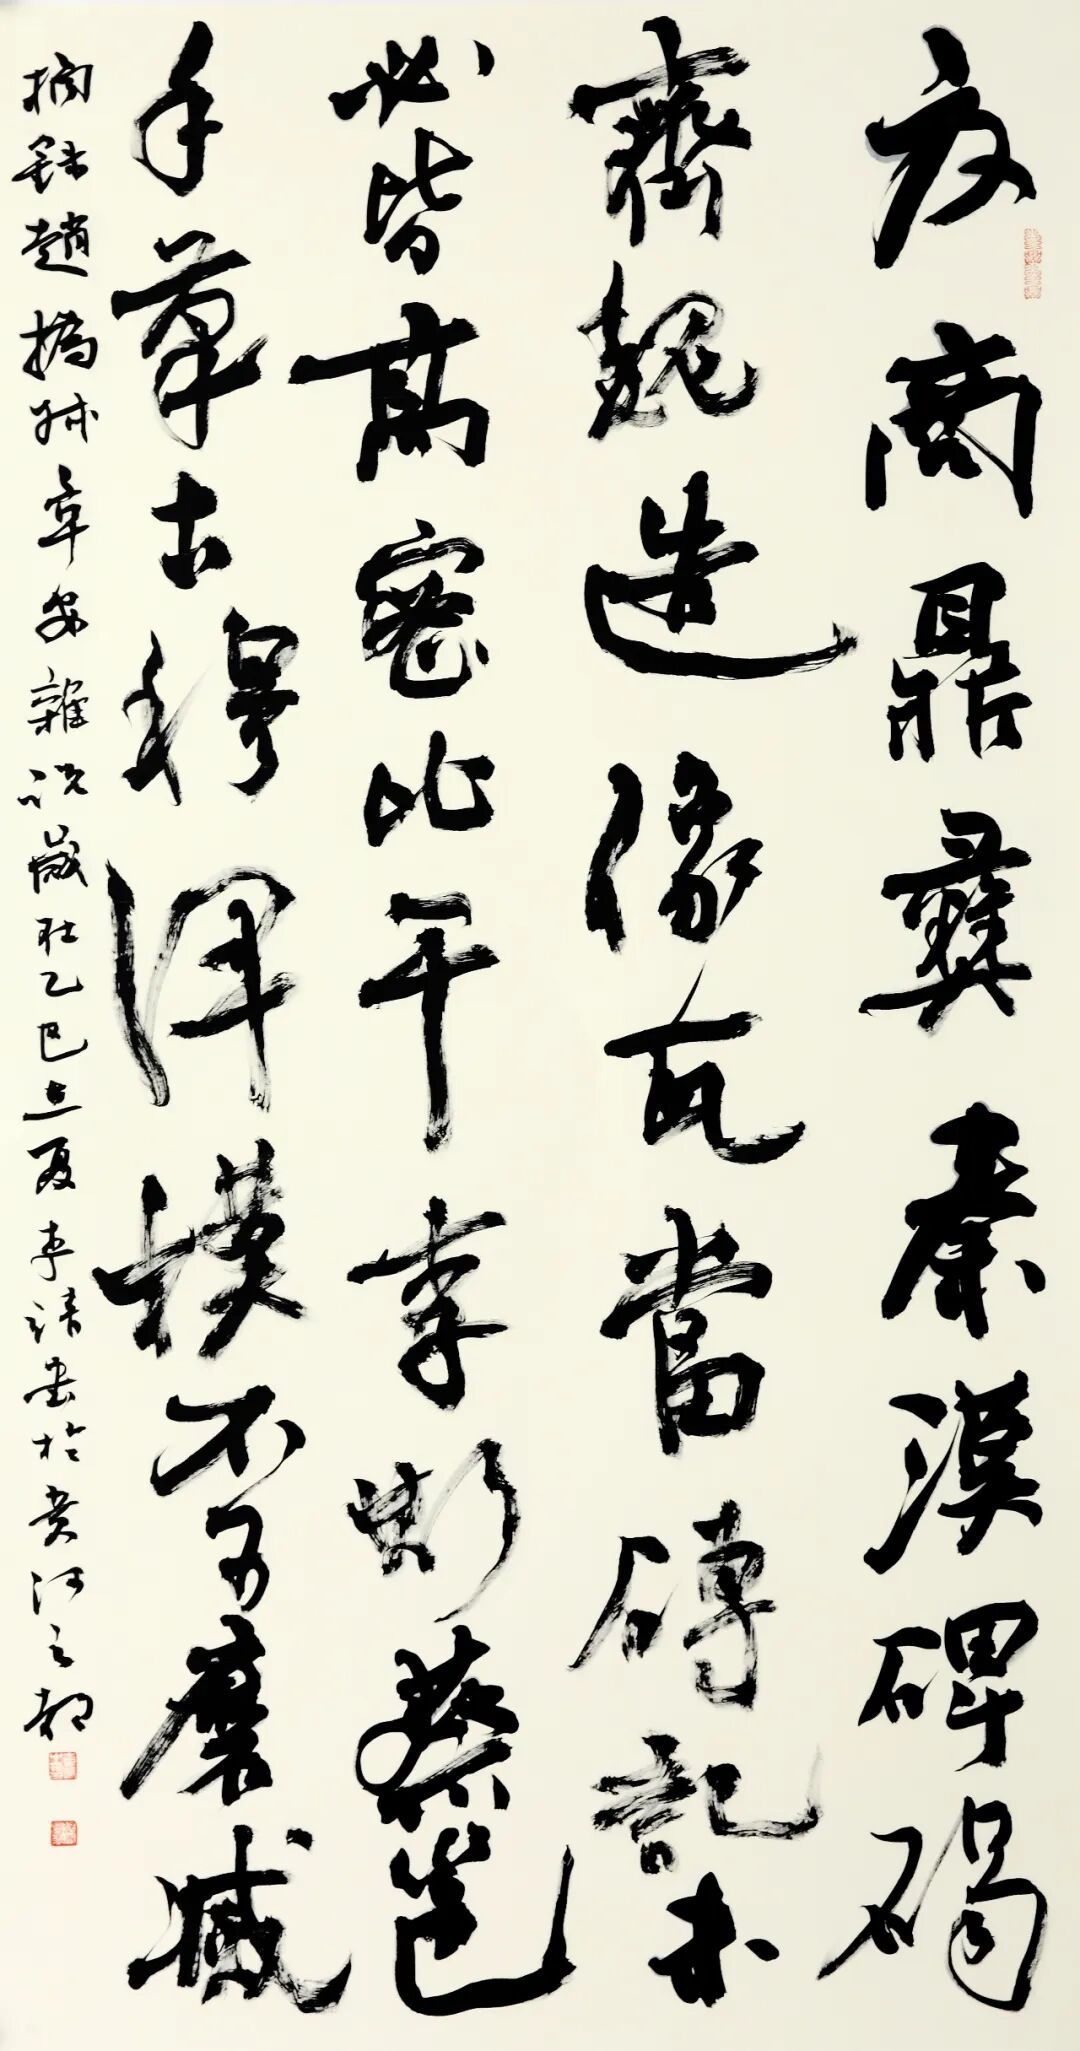 夏商鼎彝秦漢碑碣
齊魏造像瓦當磚記未
必皆高密比干李斯蔡邕
手筆古穆渾樸不可磨滅
摘錄趙撝叔章安雜說歲在乙巳立夏李書於黄河之都